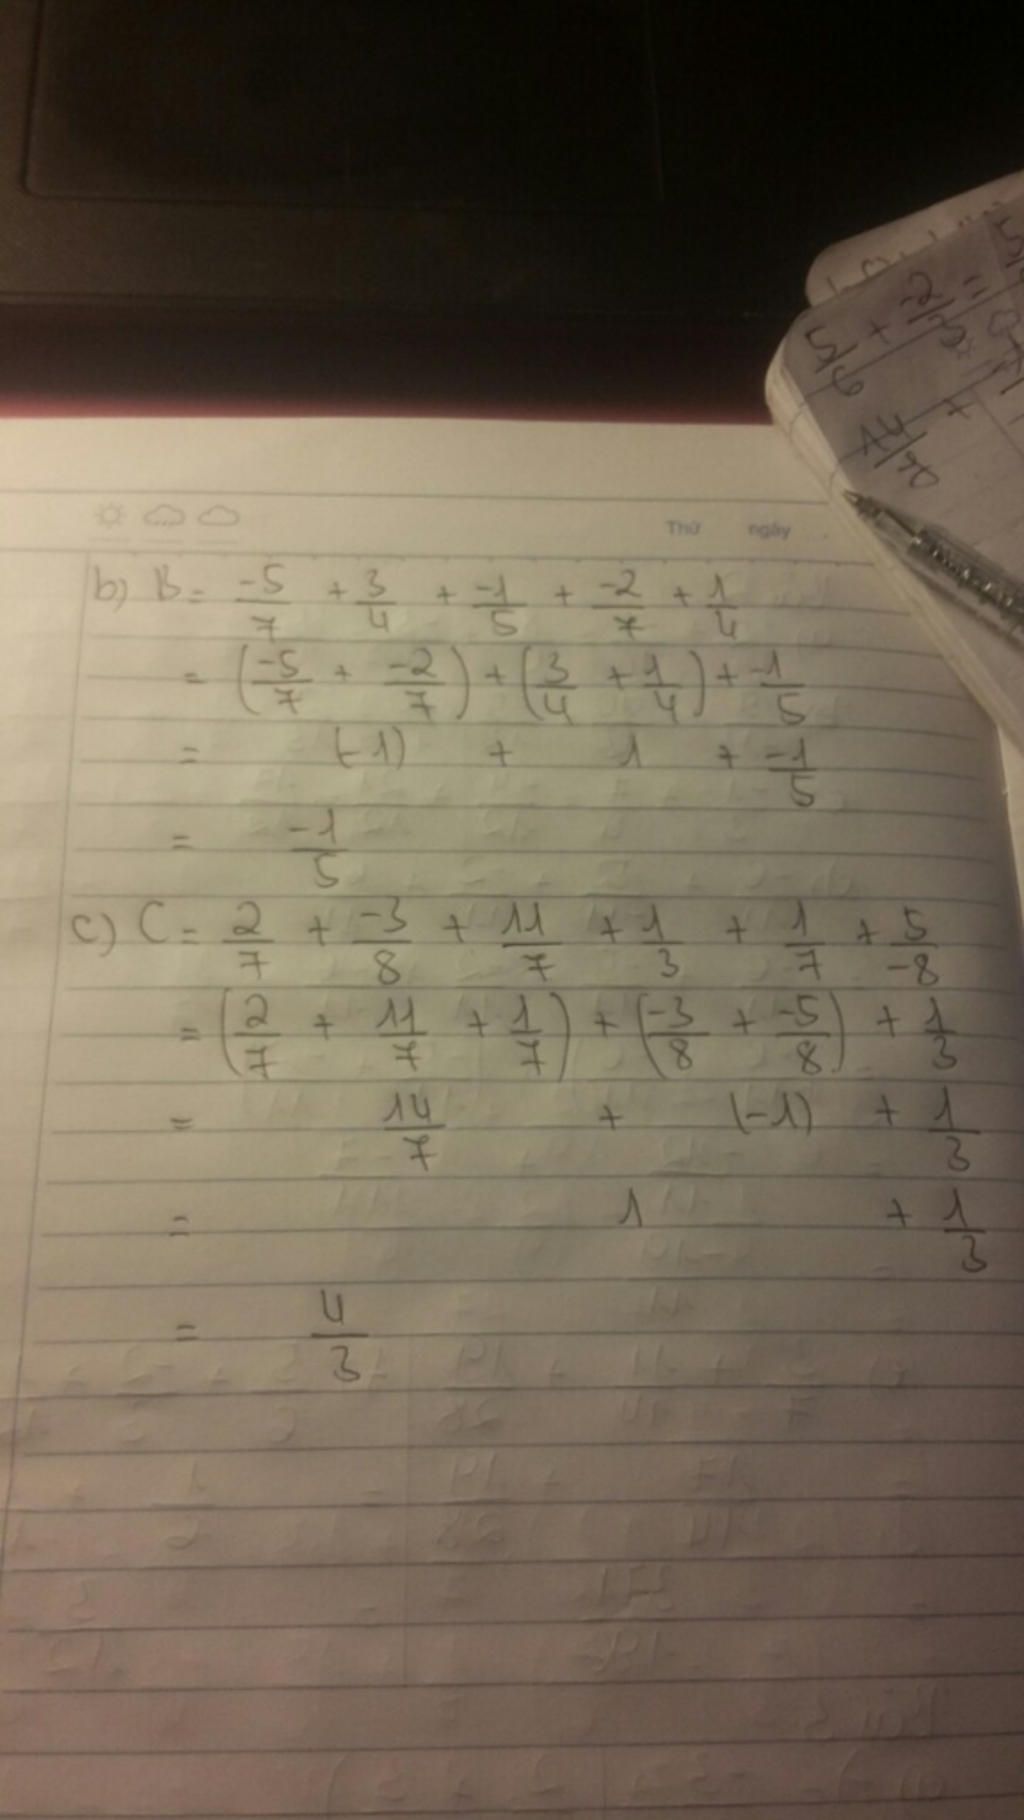 Thứ ngày
b) B = -5/7 + 3/4 + -1/5 + -2/7 + 1/4
= (-5/7 + -2/7) + (3/4 + 1/4) + -1/5
= (-1) + 1 + -1/5
= -1/5
c) C = 2/7 + -3/8 + 11/7 + 1/3 + 1/7 + 5/-8
= (2/7 + 11/7 + 1/7) + (-3/8 + -5/8) + 1/3
= 14/7 + (-1) + 1/3
= 1 + 1/3
= 4/3
5/6 + -2/3 =